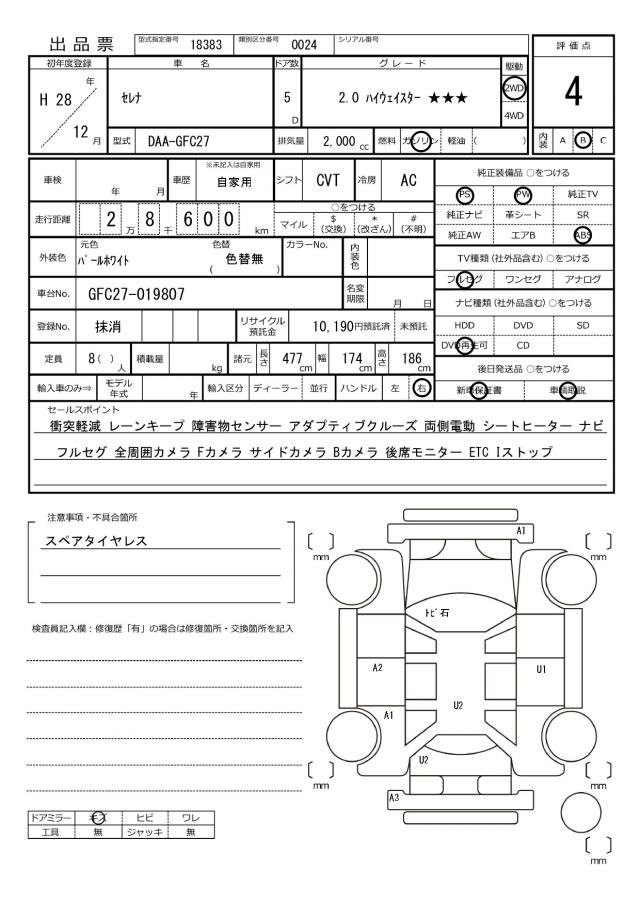 出品票 型式指定番号 18383 類別区分番号 0024 シリアル番号
初年度登録 車名 ドア数 グレード 駆動 評価点
H 28 年 12 月 セレナ 5 D 2.0 ハイウェイスター ★★★ 2WD 4WD 4
型式 DAA-GFC27 排気量 2,000 cc 燃料 ガソリン 軽油 ( ) 内装 A B C
車検 年 月 車歴 ※未記入は自家用 自家用 シフト CVT 冷房 AC
純正装備品 ○をつける
PS PW 純正TV
純正ナビ 革シート SR
純正AW エアB ABS
走行距離 2 万 8 千 6 0 0 km ○をつける
マイル $ (交換) * (改ざん) # (不明)
外装色 元色 パールホワイト 色替 ( 色替無 ) カラーNo. 内装色
TV種類 (社外品含む) ○をつける
フルセグ ワンセグ アナログ
車台No. GFC27-019807 名変期限 月 日
ナビ種類 (社外品含む) ○をつける
HDD DVD SD
DVD再生可 CD
登録No. 抹消 リサイクル預託金 10,190円預託済 未預託
定員 8 ( ) 人 積載量 kg 諸元 長さ 477 cm 幅 174 cm 高さ 186 cm
後日発送品 ○をつける
新車保証書 車輌取説
輸入車のみ⇒ モデル年式 年 輸入区分 ディーラー 並行 ハンドル 左 右
セールスポイント
衝突軽減 レーンキープ 障害物センサー アダプティブクルーズ 両側電動 シートヒーター ナビ
フルセグ 全周囲カメラ Fカメラ サイドカメラ Bカメラ 後席モニター ETC Iストップ
注意事項・不具合箇所
スペアタイヤレス
検査員記入欄：修復歴「有」の場合は修復箇所・交換箇所を記入
A1
[ ] mm [ ] mm
トビ石
A2 U1
A1 U2
U2
[ ] mm [ ] mm
A3
[ ] mm
ドアミラー キズ ヒビ ワレ
工具 無 ジャッキ 無